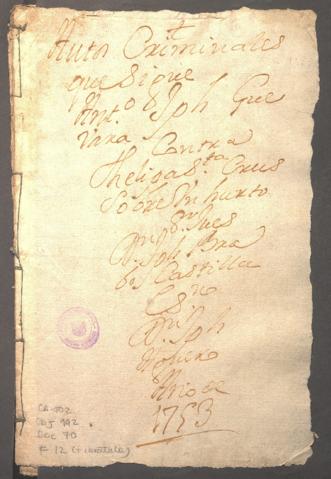 Autos Criminales
que Sigue
Ant.o Sph Gue
vara
Contra
Phelipa S.ta Crus
Sobre Un hurto
Jues
D.n Sph Bra
bo Castilla
Es.no
D.n Sph
Año de
1753
CA-102
CDJ 142
DOC 70
F 12 (+ caratula)